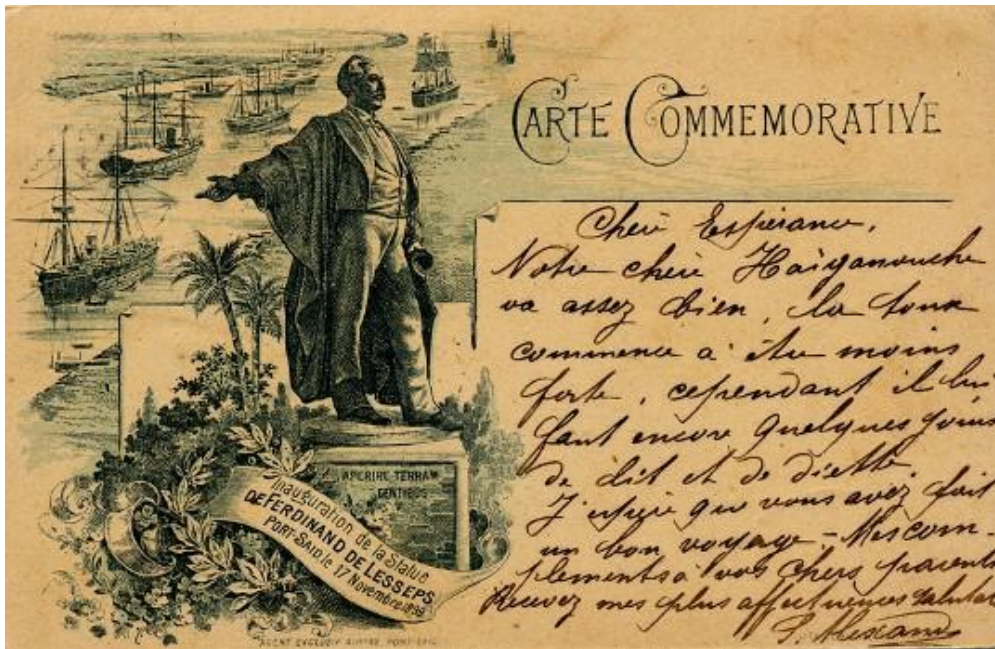 CARTE COMMEMORATIVE
Chère Espérance,
Notre chère Haïganouche
va assez bien, la toux
commence à être moins
forte, cependant il lui
faut encore quelques jours
de lit et de diette.
J'espère que vous avez fait
un bon voyage - Mes com-
plements à vos chers parents
Recevez mes plus affectueuses salutat
APERIRE TERRAM
GENTIBUS
Inauguration de la Statue
DE FERDINAND DE LESSEPS
PORT-SAID, le 17 Novembre 1899
AGENT EXCLUSIF PORT-SAID